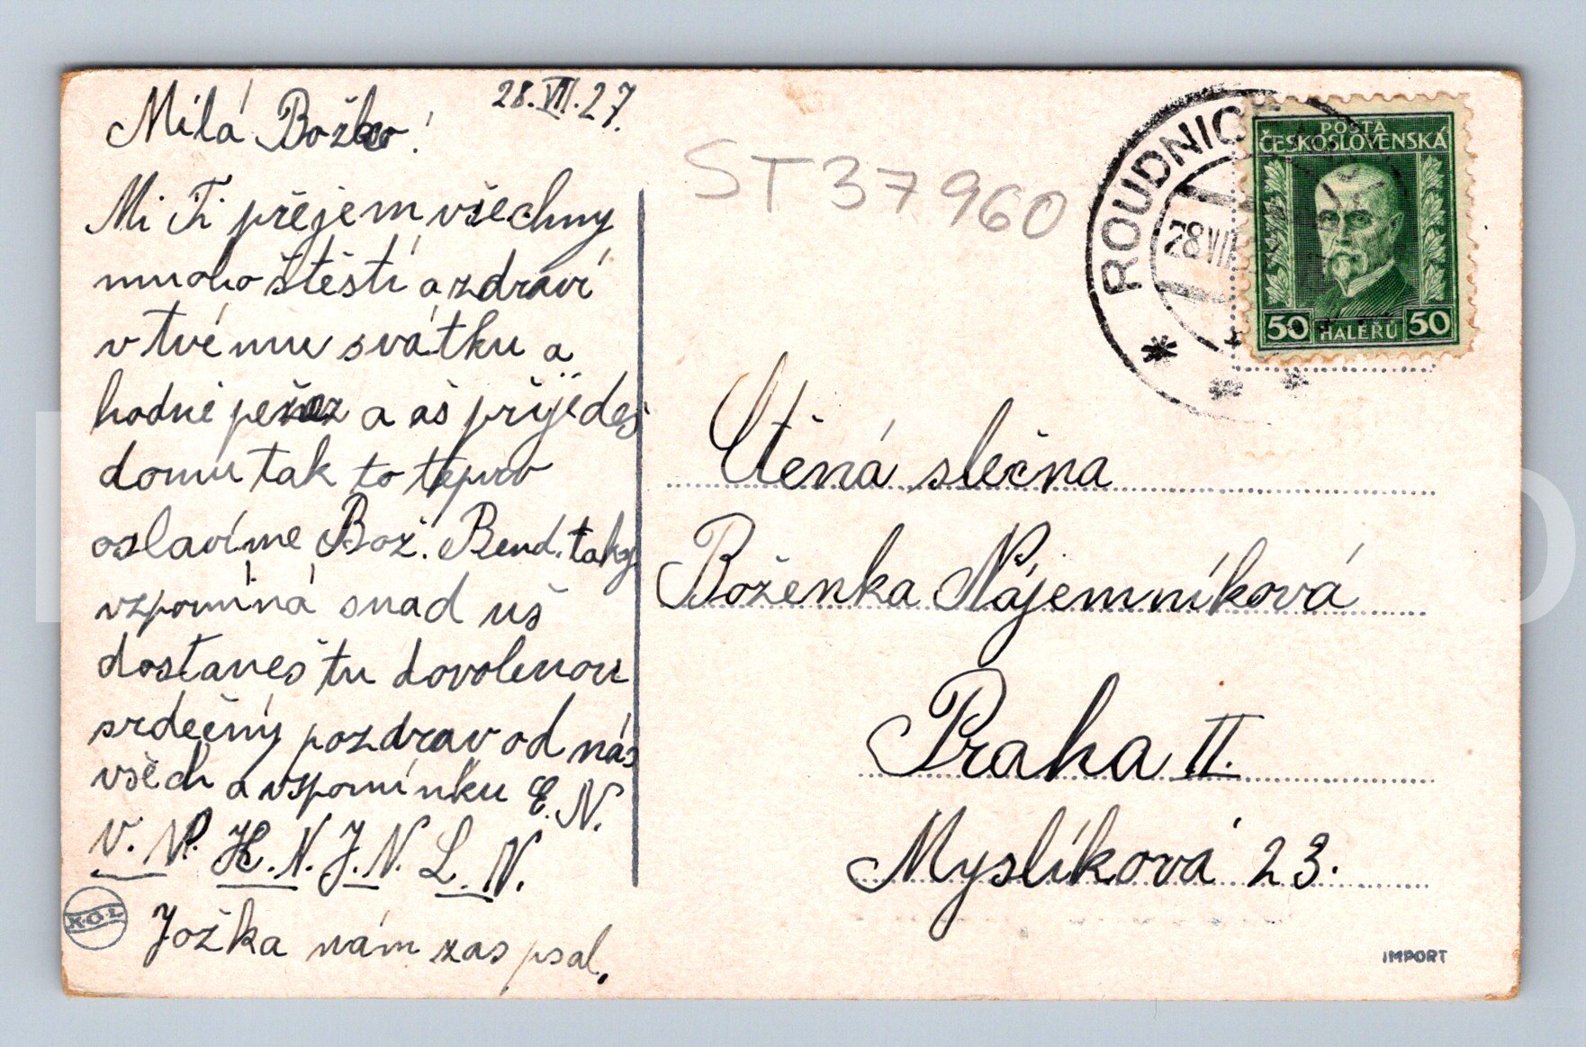 28.VII.27.
Milá Božko!
Mi Ti přejem všechny
mnoho štěstí a zdraví
v tvému svátku a
hodně peněz a aš přijedeš
domu tak to teprv
oslavíme Bož. Bend. taky
vzpomíná snad uš
dostaneš tu dovolenou
srdečný pozdrav od nás
všech a vspomínku E. N.
V. N. H. N. J. N. L. N.
Jožka nám zas psal.
K.O.L
ST 37960
ROUDNIC
28 VII
POŠTA
ČESKOSLOVENSKÁ
50 HALÉŘŮ 50
Ctěná slečna
Boženka Nájemníková
Praha II.
Myslíková 23.
IMPORT